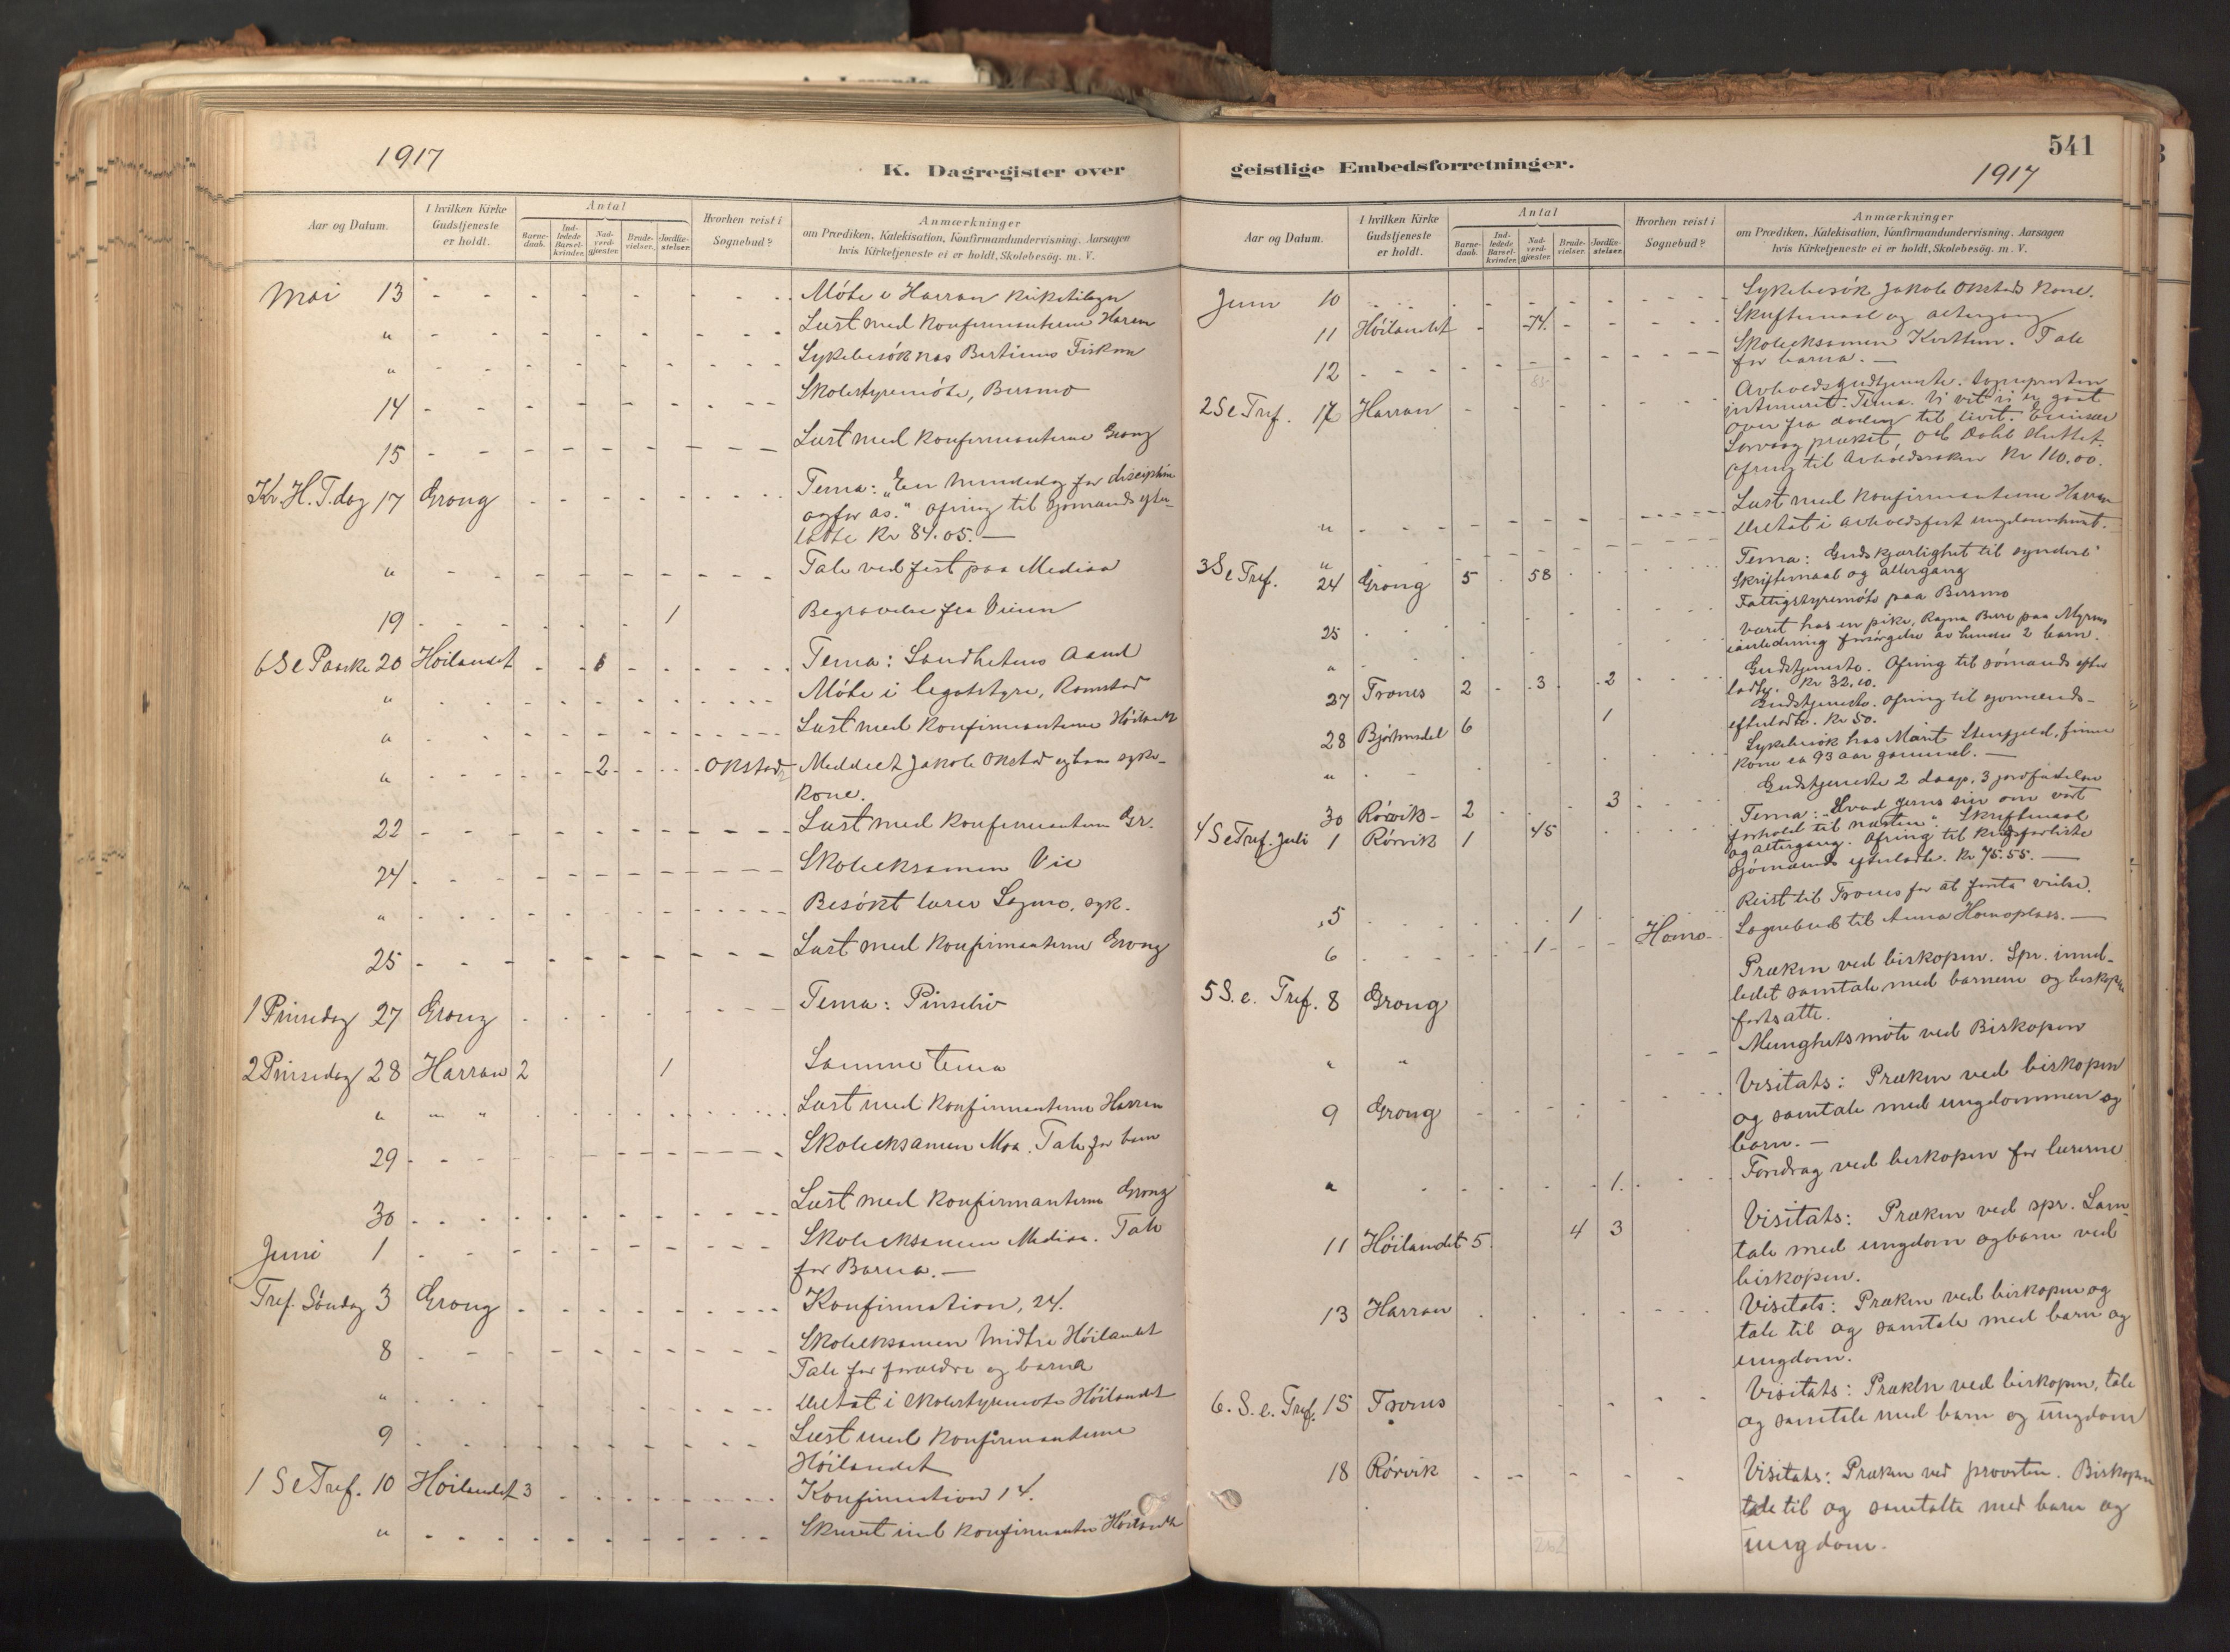 1917
K. Dagregister over
Aar og Datum.
I hvilken Kirke Gudstjeneste er holdt.
Antal
Barnedaab.
Indledede Barselkvinder.
Nadverdgjæster.
Brudevielser.
Jordfæstelser.
Hvorhen reist i Sognebud?
Anmærkninger
om Prædiken, Katekisation, Konfirmandundervisning. Aarsagen
hvis Kirketjeneste ei er holdt, Skolebesøg. m. V.
Mai 13 Møte i Harran kirketilsyn
" Læst med konfirmanterne Harran
" Sykebesøk hos Bertinus Fiskum
14 Skolestyremøte, Bersmo
15 Læst med konfirmanterne Grong
Kr. H. T. dag 17 Grong Tema: "En mindedag for disciplene
og for os." Ofring til sjømænds efter-
latte Kr 84.05. —
" Tale ved fest paa Mediaa
19 1 Begravelse fra Veiem
6 S e Paaske 20 Høilandet Tema: Sandhetens Aand
" Møte i legatstyre, Romstad
" Læst med konfirmanterne Høilandet
" 2 Okstad Meddelt Jakob Okstad og hans syke-
kone.
22 Læst med konfirmanterne Gr.
24 Skoleeksamen Vie
" Besøkt lærer Sagmo, syk.
25 Læst med konfirmanterne Grong
1 Pinsedag 27 Grong Tema: Pinseliv
2 Pinsedag 28 Harran 2 1 Samme tema
" " " Læst med konfirmanterne Harran
29 Skoleeksamen Moa. Tale for barn
30 Læst med konfirmanterne Grong
Juni 1 Skoleeksamen Mediaa. Tale
for Barna. —
Tref. Søndag 3 Grong Konfirmation, 24.
8 Skoleeksamen Midtre Høilandet
Tale for forældre og barna
" Deltat i skolestyremøte Høilandet
9 Læst med konfirmanterne
Høilandet
1 S e Tref. 10 Høilandet 3 Konfirmation 14.
" Skrevet ind konfirmanter Høilandet
541
geistlige Embedsforretninger.
1917
Aar og Datum.
I hvilken Kirke Gudstjeneste er holdt.
Antal
Barnedaab.
Indledede Barselkvinder.
Nadverdgjæster.
Brudevielser.
Jordfæstelser.
Hvorhen reist i Sognebud?
Anmærkninger
om Prædiken, Katekisation, Konfirmandundervisning, Aarsagen
hvis Kirketjeneste ei er holdt, Skolebesøg. m. V.
Juni 10 Sykebesøk Jakob Okstads kone.
11 Høilandet 74. Skriftemaal og altergang
12 Skoleeksamen Kvittum. Tale
for barna. —
2 S e Tref. 17 Harran Avholdsgudstjeneste. Sogneprsten
intimeret. Tema. Vi vet vi er gaat
over fra døden til livet.
præket,
Ofring til Avholdssaken Kr 110.00.
Læst med konfirmanterne Harran
" Deltat i avholdsfest ungdomshuset.
3 S e Tref. 24 Grong 5 58 Tema: Guds kjærlighet til syndere
Skriftemaal og altergang
25 Fattigstyremøte paa Bersmo
" Været hos en pike, Ragna paa
i anledning forsørgelse av hendes 2 barn.
27 Trones 2 3 2 Gudstjeneste. Ofring til sømænds efter
ladte. Kr 32.10.
28 Bjørhusdal 6 1 Gudstjeneste. Ofring til sjømænds-
efterladte. Kr 50.
" Sykebesøk hos Marit Stenfjeld,
kone ca 93 aar gammel. —
30 Rørvik 2 3 Gudstjeneste 2 daap. 3 jordfæstelser
4 S e Tref. Juli 1 Rørvik 1 45 Tema: "Hvad Jesus sier om vort
forhold til næsten." Skriftemaal
og altergang. Ofring til krigsforliste
sjømænds efterladte. Kr. 75.55. —
5 1 Reist til Trones for at vielse.
6 1 Homo Sognebud til Anna Homoplass. —
5 S. e. Tref. 8 Grong Præken ved biskopen. Spr. inned-
ledet samtale med barnene og biskopen
fortsatte.
" " Menighetsmøte ved Biskopen
9 Grong Visitats: Præken ved biskopen
og samtale med ungdommen og
barn. —
" 1. Foredrag ved biskopen for lærerne
11 Høilandet 5 4 3 Visitats: Præken ved spr. Sam-
tale med ungdom og barn ved
biskopen.
13 Harran Visitats: Præken ved biskopen og
tale til og samtale med barn og
ungdom.
6. S. e. Tref. 15 Trones Visitats: Præken ved biskopen, tale
og samtale med barn og ungdom
18 Rørvik Visitats: Præken ved provsten. Biskopen
tale til og samtalte med barn og
ungdom.